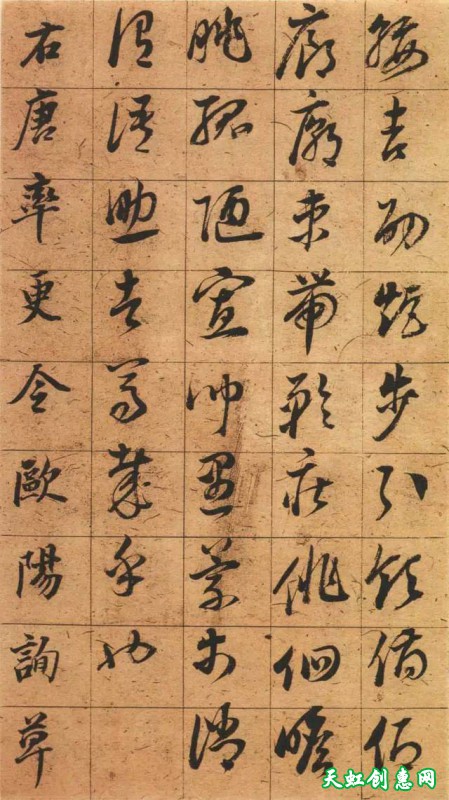 綏吉劭矩步引領俯仰
廊廟束帶矜莊徘徊瞻
眺孤陋寡聞愚蒙等誚
謂語助者焉哉乎也
右唐率更令歐陽詢草
天虹创惠网